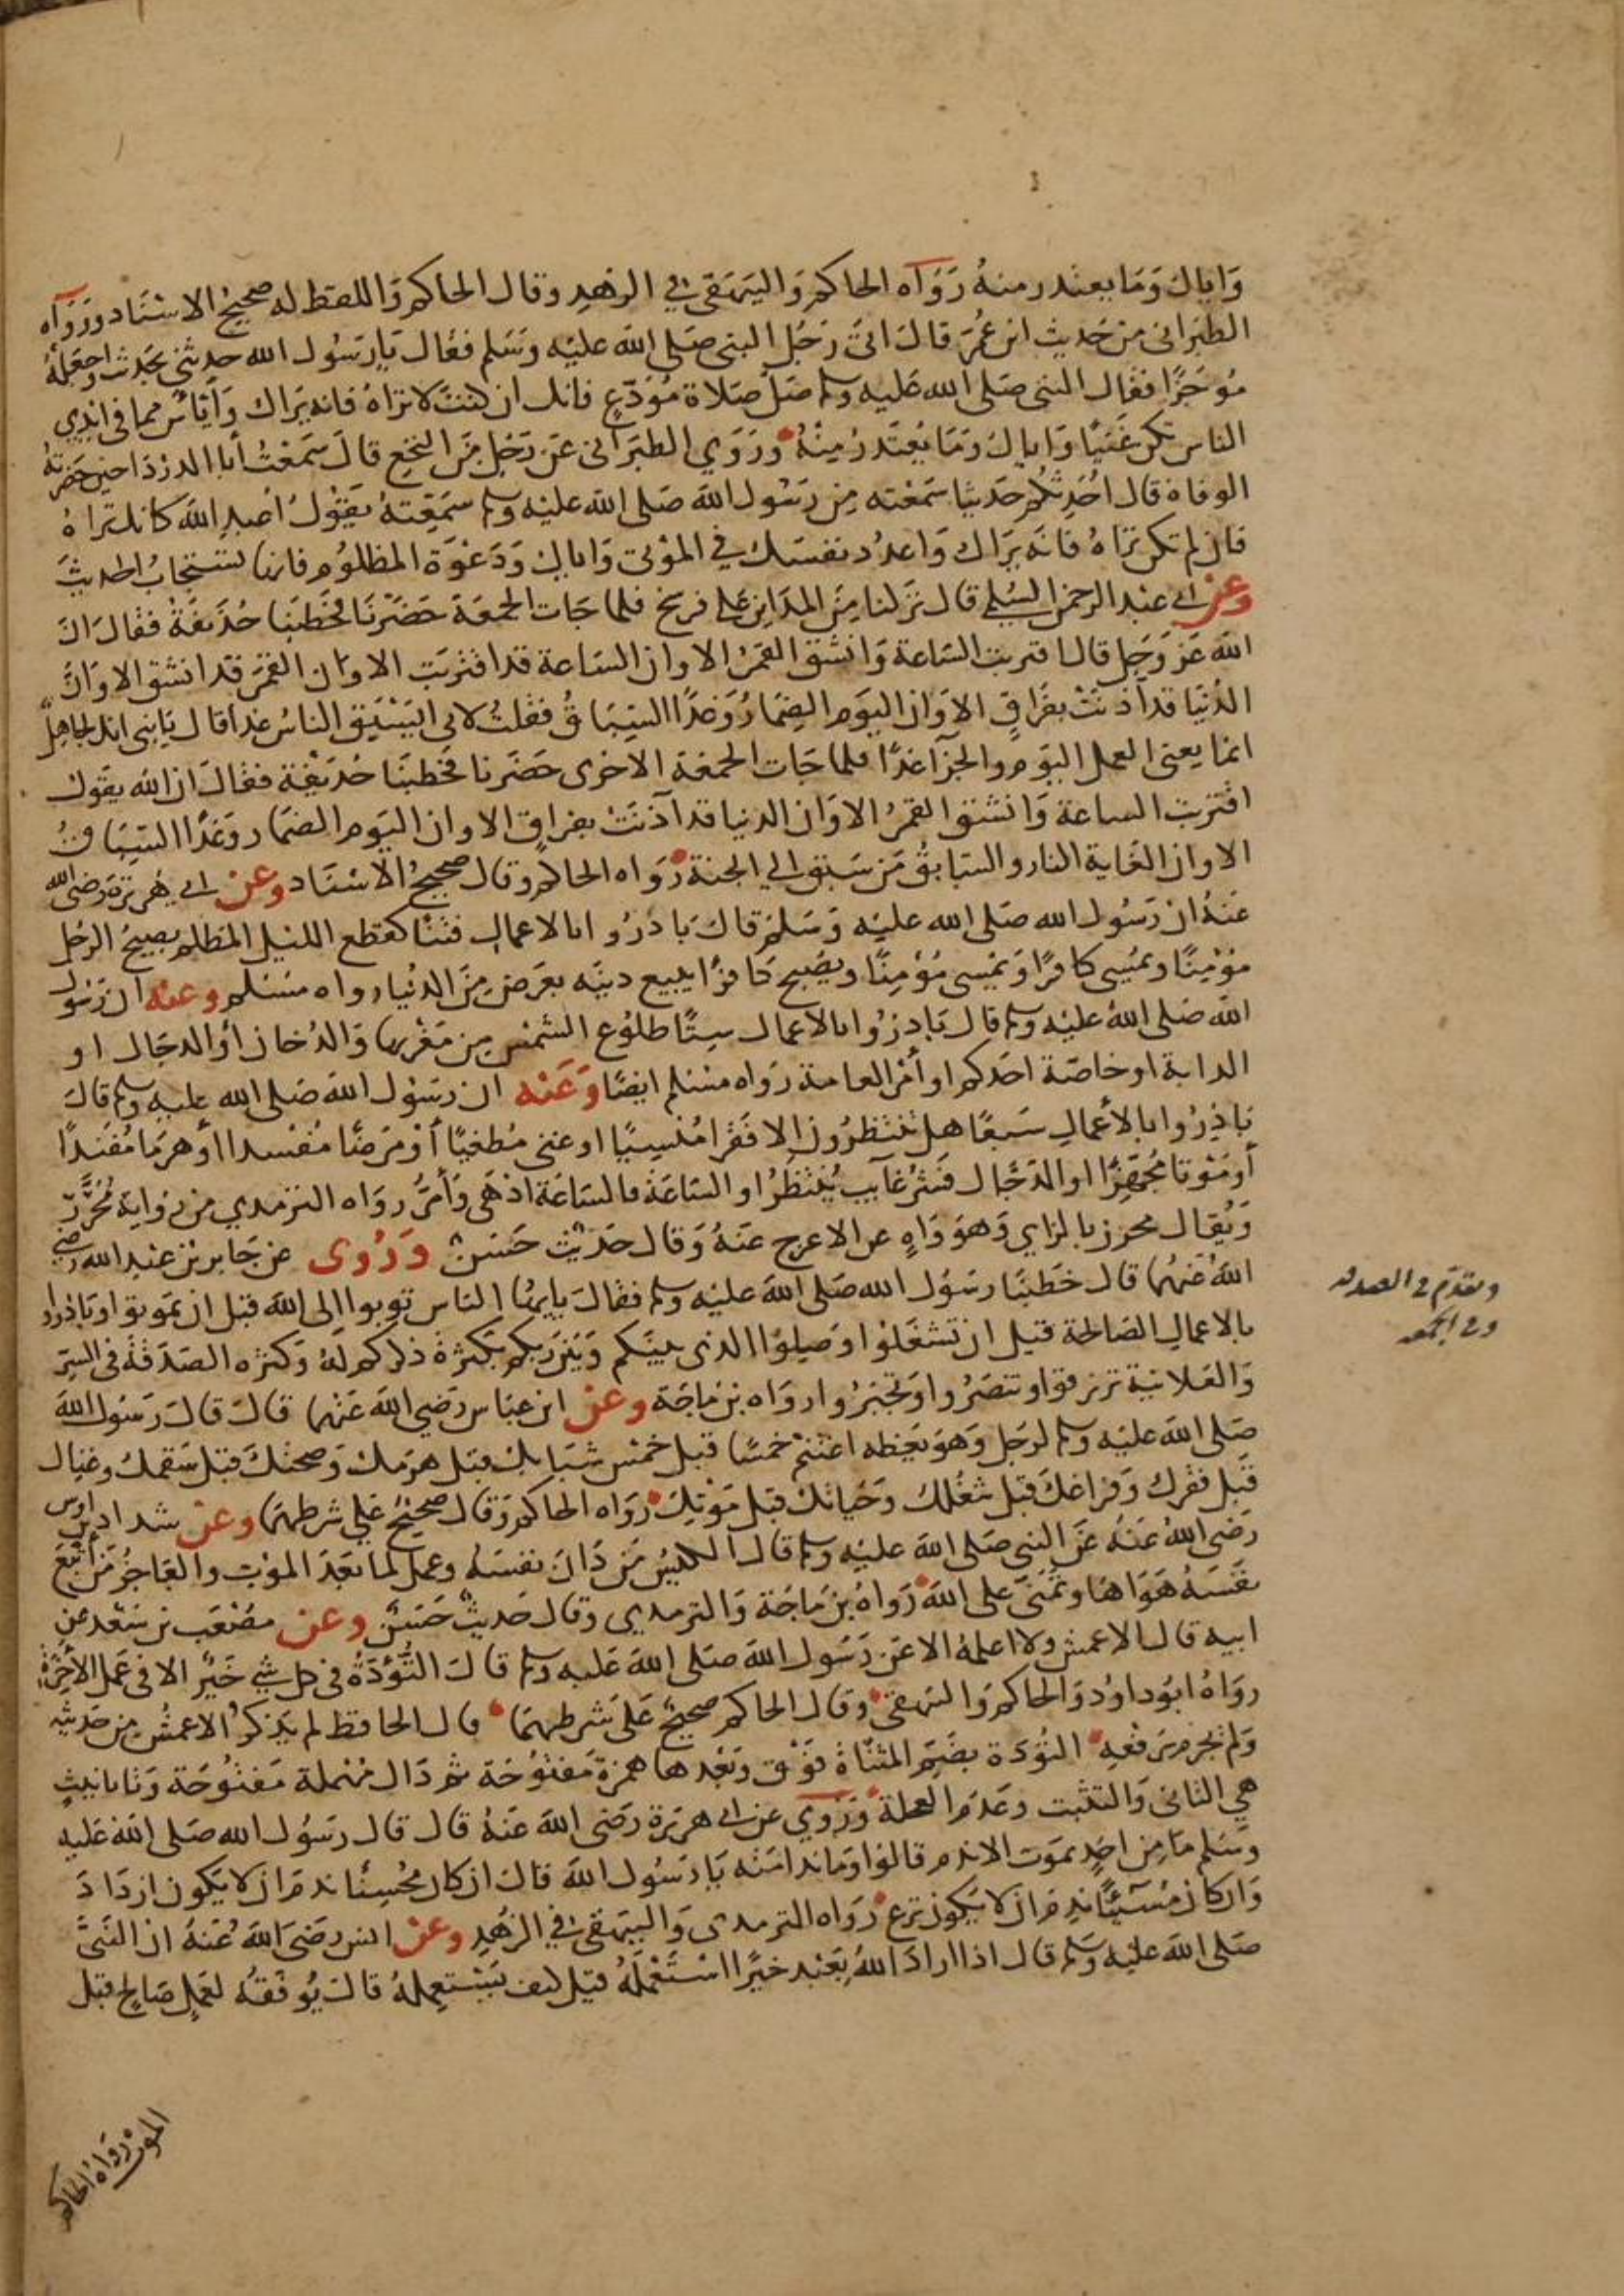 واياك وما يعتذر منه رواه الحاكم والبيهقي في الزهد وقال الحاكم واللفظ له صحيح الاسناد ورواه
الطبراني من حديث ابن عمر قال اتى رجل النبي صلى الله عليه وسلم فقال يا رسول الله حدثني بحديث واجعله
موجزا فقال النبي صلى الله عليه وسلم صل صلاة مودع فانك ان كنت لا تراه فانه يراك وآيس مما في ايدي
الناس تكن غنيا واياك وما يعتذر منه وروي الطبراني عن رجل من النخع قال سمعت أبا الدردا حين حضرته
الوفاة قال احدثكم حديثا سمعته من رسول الله صلى الله عليه وسلم سمعته يقول اعبد الله كانك تراه
فان لم تكن تراه فانه يراك واعدد نفسك في الموتى واياك ودعوة المظلوم فانها تستجاب الحديث
وعن ابي عبد الرحمن السلمي قال نزلنا من المداين على فرسخ فلما جات الجمعة حضرنا فخطبنا حذيفة فقال ان
الله عز وجل قال اقتربت الساعة وانشق القمر الا وان الساعة قد اقتربت الا وان القمر قد انشق الا وان
الدنيا قد آذنت بفراق الا وان اليوم المضمار وغدا السباق فقلت لابي ايستبق الناس غدا قال يا بني انك لجاهل
انما يعني العمل اليوم والجزآ غدا فلما جات الجمعة الاخرى حضرنا فخطبنا حذيفة فقال ان الله يقول
اقتربت الساعة وانشق القمر الا وان الدنيا قد آذنت بفراق الا وان اليوم المضمار وغدا السباق
الا وان الغاية النار والسابق من سبق الي الجنة رواه الحاكم وقال صحيح الاسناد وعن ابي هريرة رضي الله
عنه ان رسول الله صلى الله عليه وسلم قال بادروا بالاعمال فتنا كقطع الليل المظلم يصبح الرجل
مؤمنا ويمسي كافرا ويمسي مؤمنا ويصبح كافرا يبيع دينه بعرض من الدنيا رواه مسلم وعنه ان رسول
الله صلى الله عليه وسلم قال بادروا بالاعمال ستا طلوع الشمس من مغربها والدخان أو الدجال او
الدابة او خاصة احدكم او أمر العامة رواه مسلم ايضا وعنه ان رسول الله صلى الله عليه وسلم قال
بادروا بالأعمال سبعا هل تنتظرون الا فقرا منسيا او غنى مطغيا أو مرضا مفسدا أو هرما مفندا
أو موتا مجهزا او الدجال فشر غآيب ينتظر او الساعة فالساعة ادهى وأمر رواه الترمدي من رواية محرر
ويقال محرز بالزاي وهو واه عن الاعرج عنه وقال حديث حسن وروى عن جابر بن عبد الله رضي
الله عنهما قال خطبنا رسول الله صلى الله عليه وسلم فقال يايها الناس توبوا الى الله قبل ان تموتوا وبادروا
بالاعمال الصالحة قبل ان تشغلوا وصلوا الذي بينكم وبين ربكم بكثرة ذكركم له وكثره الصدقة في السر
والعلانية ترزقوا وتنصروا وتجبروا رواه بن ماجة وعن ابن عباس رضي الله عنهما قال قال رسول الله
صلى الله عليه وسلم لرجل وهو يعظه اغتنم خمسا قبل خمس شبابك قبل هرمك وصحتك قبل سقمك وغناك
قبل فقرك وفراغك قبل شغلك وحياتك قبل موتك رواه الحاكم وقال صحيح علي شرطهما وعن شداد بن اوس
رضي الله عنه عن النبي صلى الله عليه وسلم قال الكيس من دان نفسه وعمل لما بعد الموت والعاجز من أتبع
نفسه هواها وتمنى على الله رواه بن ماجة والترمدي وقال حديث حسن وعن مصعب بن سعد عن
ابيه قال الاعمش ولا اعلمه الا عن رسول الله صلى الله عليه وسلم قال التؤدة في كل شي خير الا في عمل الآخرة
رواه ابو داود والحاكم والبيهقي وقال الحاكم صحيح على شرطهما قال الحافظ لم يذكر الاعمش من حدثه
ولم يجزم برفعه التؤدة بضم المثناة فوق وبعدها همزة مفتوحة ثم دال مهملة مفتوحة وتا تانيث
هي التاني والتثبت وعدم العجلة وروي عن ابي هريرة رضي الله عنه قال قال رسول الله صلى الله عليه
وسلم ما من احد يموت الا ندم قالوا وما ندامته يا رسول الله قال ان كان محسنا ندم ان لا يكون ازداد
وان كان مسيئا ندم ان لا يكون نزع رواه الترمدي والبيهقي في الزهد وعن انس رضي الله عنه ان النبي
صلى الله عليه وسلم قال اذا اراد الله بعبد خيرا استعمله قيل كيف يستعمله قال يوفقه لعمل صالح قبل
الموت رواه الحاكم
وتقدم في الصدقه
وفي الجمعه